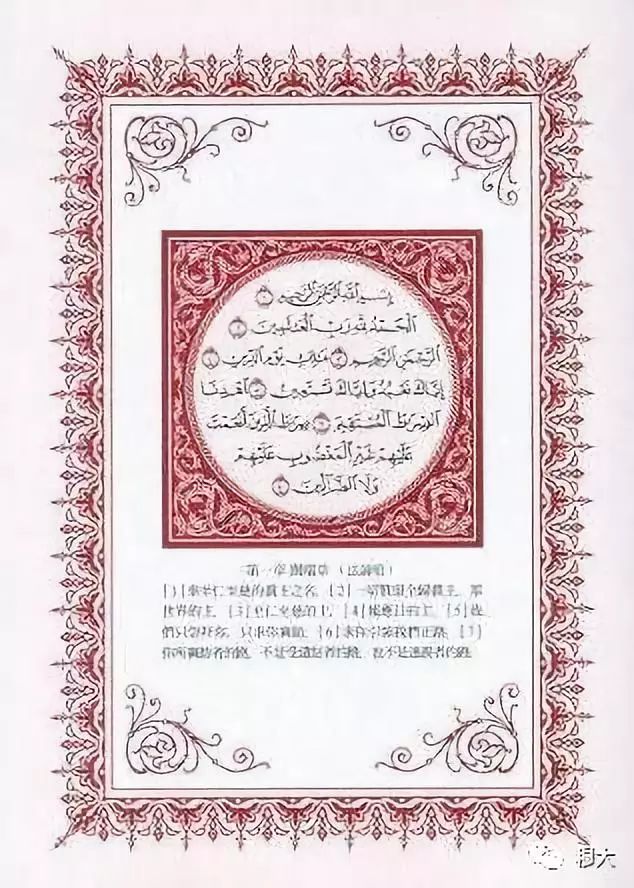 بِسْمِ اللَّهِ الرَّحْمَٰنِ الرَّحِيمِ ١
الْحَمْدُ لِلَّهِ رَبِّ الْعَالَمِينَ ٢
الرَّحْمَٰنِ الرَّحِيمِ ٣ مَالِكِ يَوْمِ الدِّينِ ٤
إِيَّاكَ نَعْبُدُ وَإِيَّاكَ نَسْتَعِينُ ٥ اهْدِنَا
الصِّرَاطَ الْمُسْتَقِيمَ ٦ صِرَاطَ الَّذِينَ أَنْعَمْتَ
عَلَيْهِمْ غَيْرِ الْمَغْضُوبِ عَلَيْهِمْ
وَلَا الضَّالِّينَ ٧
第一章 開端章
[1] 奉至仁至慈的真主之名。[2] 一切讚頌全歸真主，眾
世界的主，[3] 至仁至慈的主，[4] 報應日的主。[5] 我
們只崇拜你，只求你祐助，[6] 求你引導我們正路，[7]
你所祐助者的路，不是受譴怒者的路，也不是迷誤者的路。